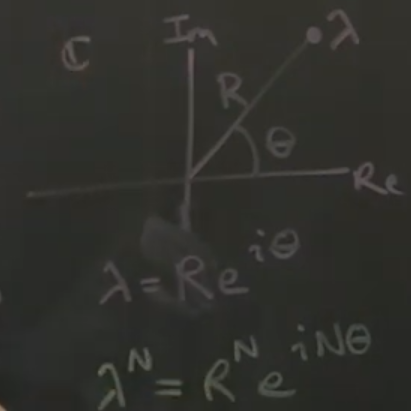 Im
ℂ
λ
R
θ
Re
λ = Re^{iθ}
λ^N = R^N e^{iNθ}